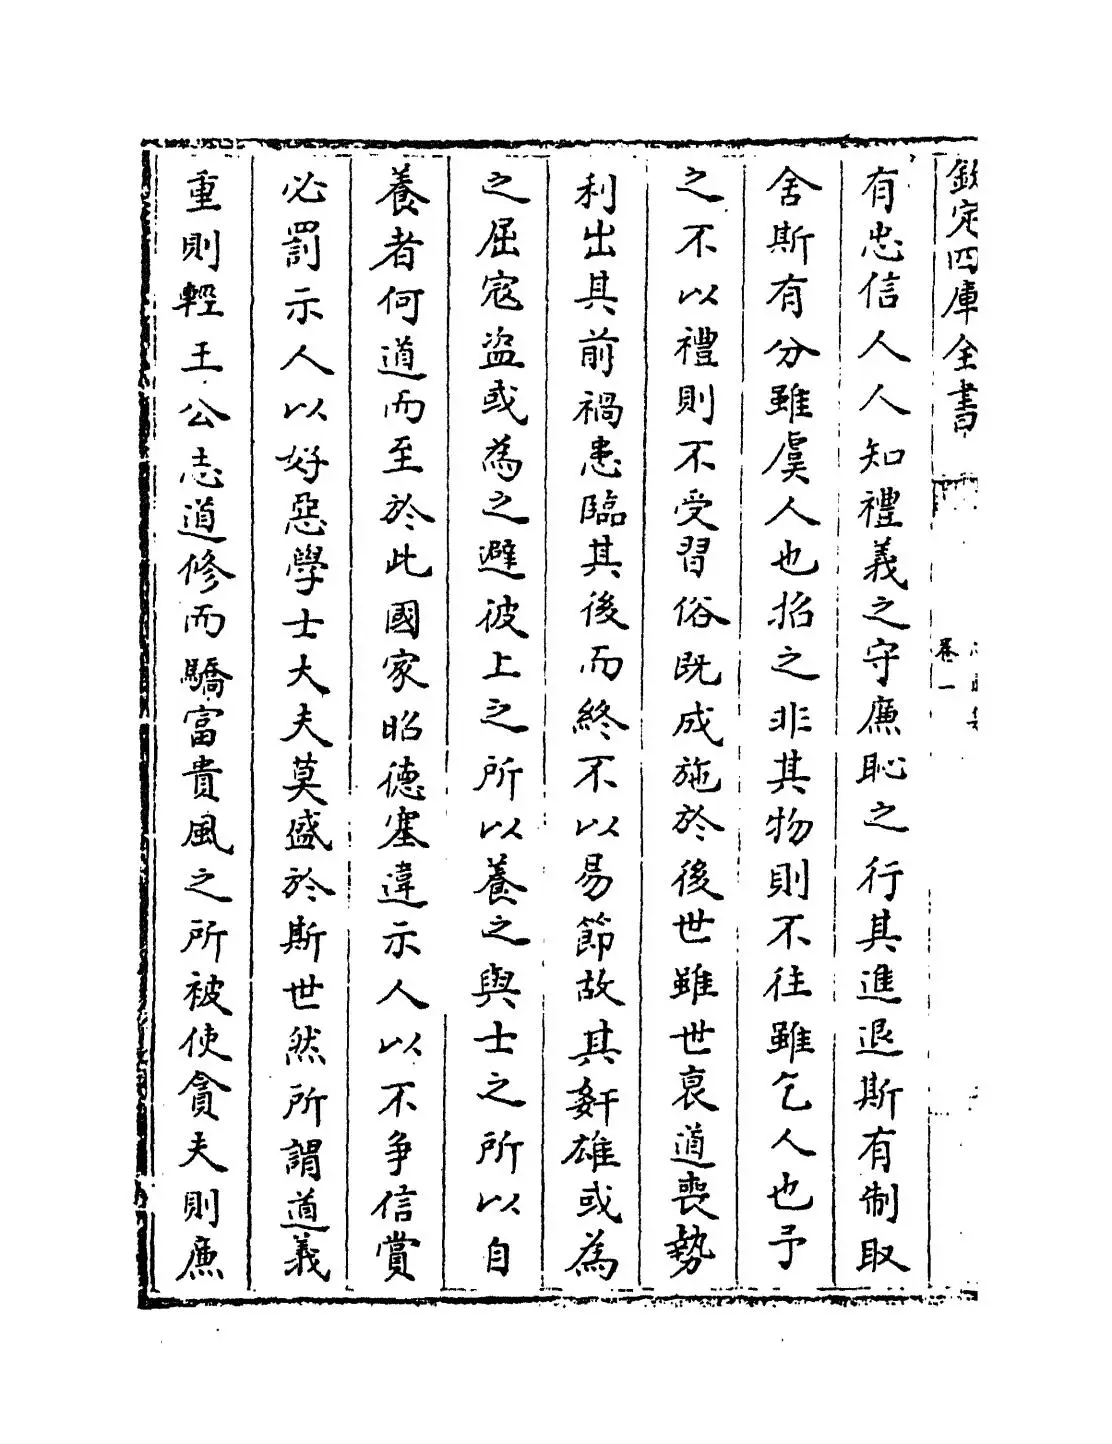 欽定四庫全書
卷一
有忠信人人知禮義之守廉恥之行其進退斯有制取
舍斯有分雖虞人也招之非其物則不往雖乞人也予
之不以禮則不受習俗既成施於後世雖世衰道喪勢
利出其前禍患臨其後而終不以易節故其姧雄或為
之屈寇盜或為之避彼上之所以養之與士之所以自
養者何道而至於此國家昭德塞違示人以不争信賞
必罰示人以好惡學士大夫莫盛於斯世然所謂道義
重則輕王公志道修而驕富貴風之所被使貪夫則廉